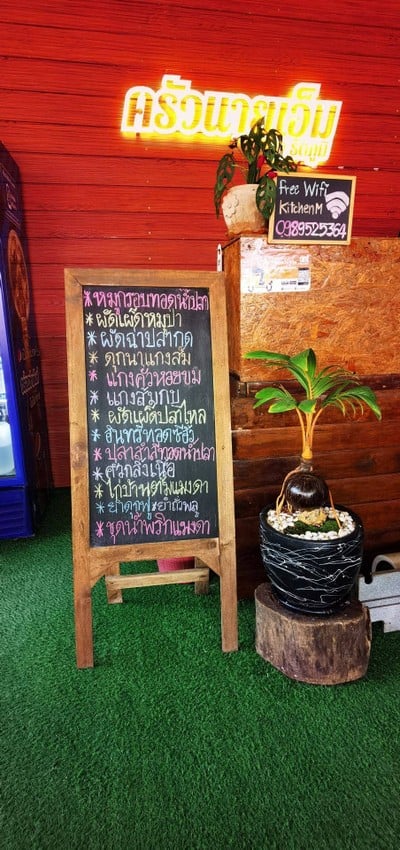 ครัวนายเอ็ม
รัตภูมิ
Free Wifi
Kitchen M
0989525364
*หมูกรอบทอดน้ำปลา
*ผัดเผ็ดหมูป่า
*ผัดฉ่าปลากด
*แกงคั่วหอยขม
*แกงส้มกบ
*ผัดเผ็ดปลาไหล
*อินทรีทอดซีอิ๊ว
*ไก่บ้านต้มแมงดา
*ยำดุกฟู*ยำถั่วพลู
*ชุดน้ำพริกแมงดา